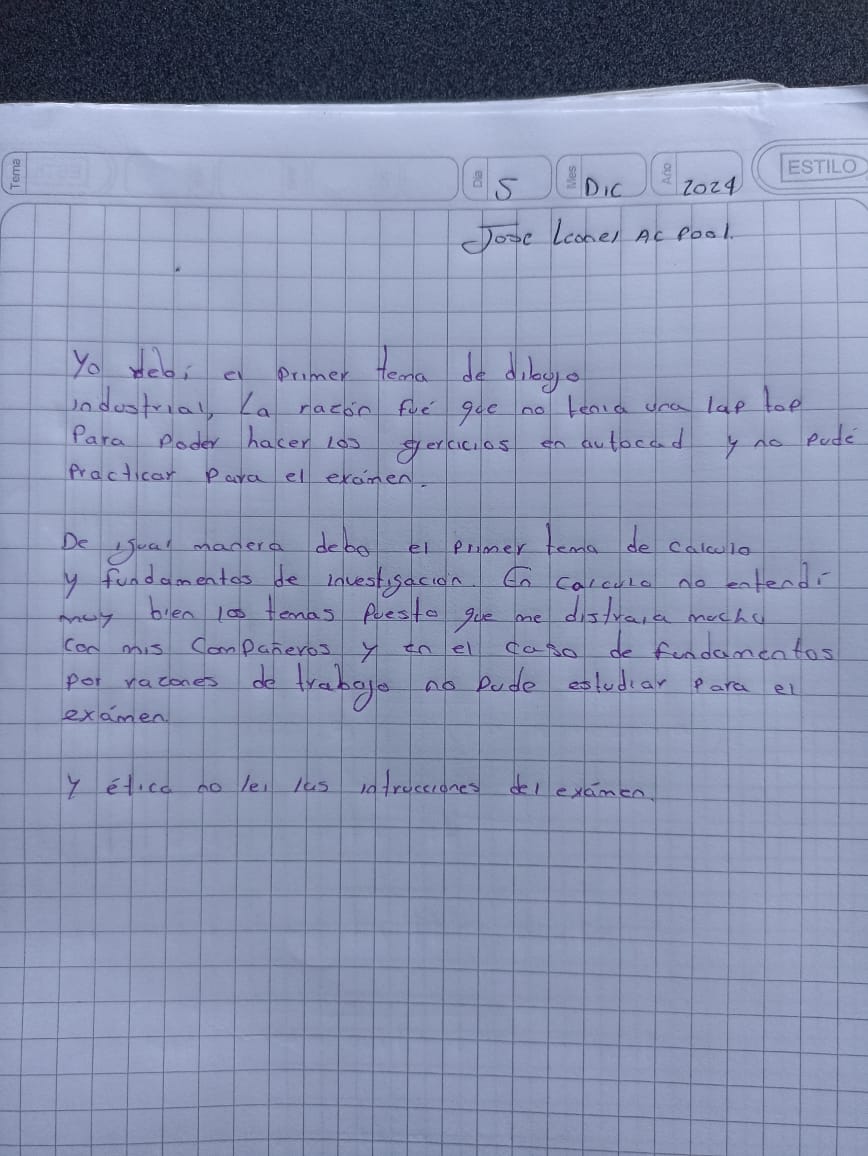 Tema
Día 5 Mes Dic Año 2024 ESTILO
Jose Leonel Ac Pool.
Yo debí el primer tema de dibujo
industrial, La racón fué que no tenia una lap top
Para poder hacer los ejercicios en autocad y no pude
Practicar para el exámen.
De igual manera debo el primer tema de calculo
y fundamentos de investigación. En calculo no entendí
muy bien los temas puesto que me distraia mucho
con mis compañeros y en el caso de fundamentos
por racones de trabajo no pude estudiar para el
exámen.
Y ética no lei las intrucciones del exámen.